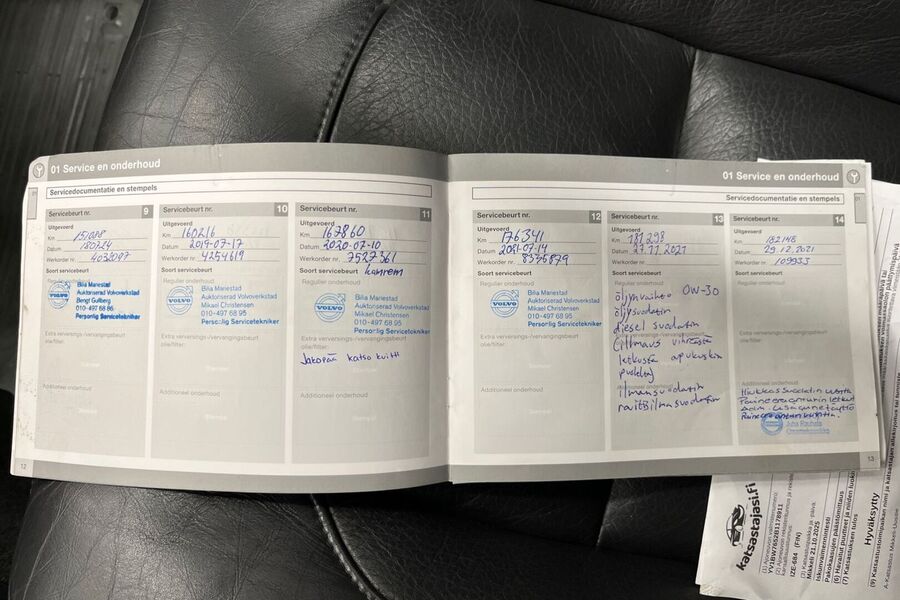 01 Service en onderhoud
Servicedocumentatie en stempels
Servicebeurt nr. 9
Uitgevoerd
Km
Datum 180224
Werkorder nr. 4038097
Soort servicebeurt
Regulier onderhoud
Bilia Mariestad
Auktoriserad Volvoverkstad
Bengt Gullberg
010-497 68 86
Personlig Servicetekniker
Extra verversings-/vervangingsbeurt
olie/filter:
Stempel
Additioneel onderhoud
Stempel
12
Servicebeurt nr. 10
Uitgevoerd
Km 160216
Datum 2019-07-17
Werkorder nr. 4254619
Soort servicebeurt
Regulier onderhoud
Bilia Mariestad
Auktoriserad Volvoverkstad
Mikael Christensen
010-497 68 95
Personlig Servicetekniker
Extra verversings-/vervangingsbeurt
olie/filter:
Stempel
Additioneel onderhoud
Stempel
Servicebeurt nr. 11
Uitgevoerd
Km 167860
Datum 2020-07-10
Werkorder nr. 7527361
Soort servicebeurt kamrem
Regulier onderhoud
Bilia Mariestad
Auktoriserad Volvoverkstad
Mikael Christensen
010-497 68 95
Personlig Servicetekniker
Extra verversings-/vervangingsbeurt
olie/filter:
Jakopää katso kuitti
Additioneel onderhoud
Stempel
01 Service en onderhoud
Servicedocumentatie en stempels
Servicebeurt nr. 12
Uitgevoerd
Km 176341
Datum 2021-07-14
Werkorder nr. 8335879
Soort servicebeurt
Regulier onderhoud
Bilia Mariestad
Auktoriserad Volvoverkstad
Mikael Christensen
010-497 68 95
Personlig Servicetekniker
Extra verversings-/vervangingsbeurt
olie/filter:
Additioneel onderhoud
Servicebeurt nr. 13
Uitgevoerd
Km 181298
Datum 27.11.2021
Werkorder nr.
Soort servicebeurt
Regulier onderhoud
öljynvaihto 0W-30
öljysuodatin
diesel suodatin
(ilmaus vihreästä
letkusta apukuskin
puolelta)
ilmansuodatin
raitisilmasuodatin
Servicebeurt nr. 14
Uitgevoerd
Km 182148
Datum 29.12.2021
Werkorder nr. 109933
Soort servicebeurt
Regulier onderhoud
Extra verversings-/vervangingsbeurt
olie/filter:
Additioneel onderhoud
Hiukkas suodatin
Paine-eroanturin letkut
VOLVO
Juha Rauhala
13
katsastajasi.fi
YV1BW7652B1178911
IZE-684 (FIN)
Mikkeli 21.10.2025
Iskunvaimennintesti
Pakokaasujen päästömittaus
(6) Havaitut puutteet ja niiden luokka
(7) Katsastuksen tulos
Hyväksytty
A-Katsastus Mikkeli-Urheilu